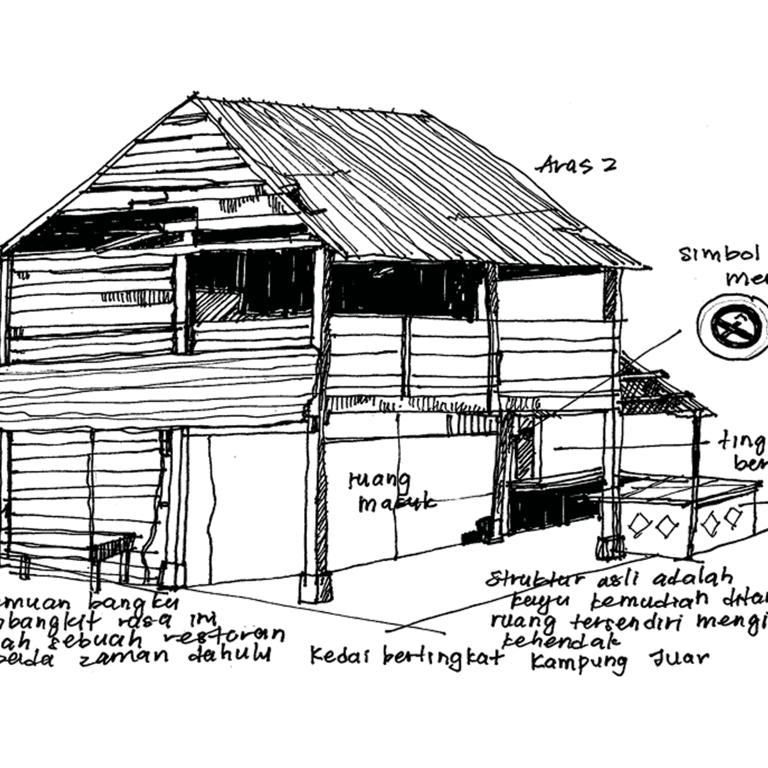 Aras 2
simbol
me
ting
ber
ruang
masuk
emuan bangku
mbangkit rasa ini
ah sebuah restoran
pada zaman dahulu
Struktur asli adalah
kayu kemudian dita
ruang tersendiri mengi
kehendak
Kedai bertingkat Kampung Juar